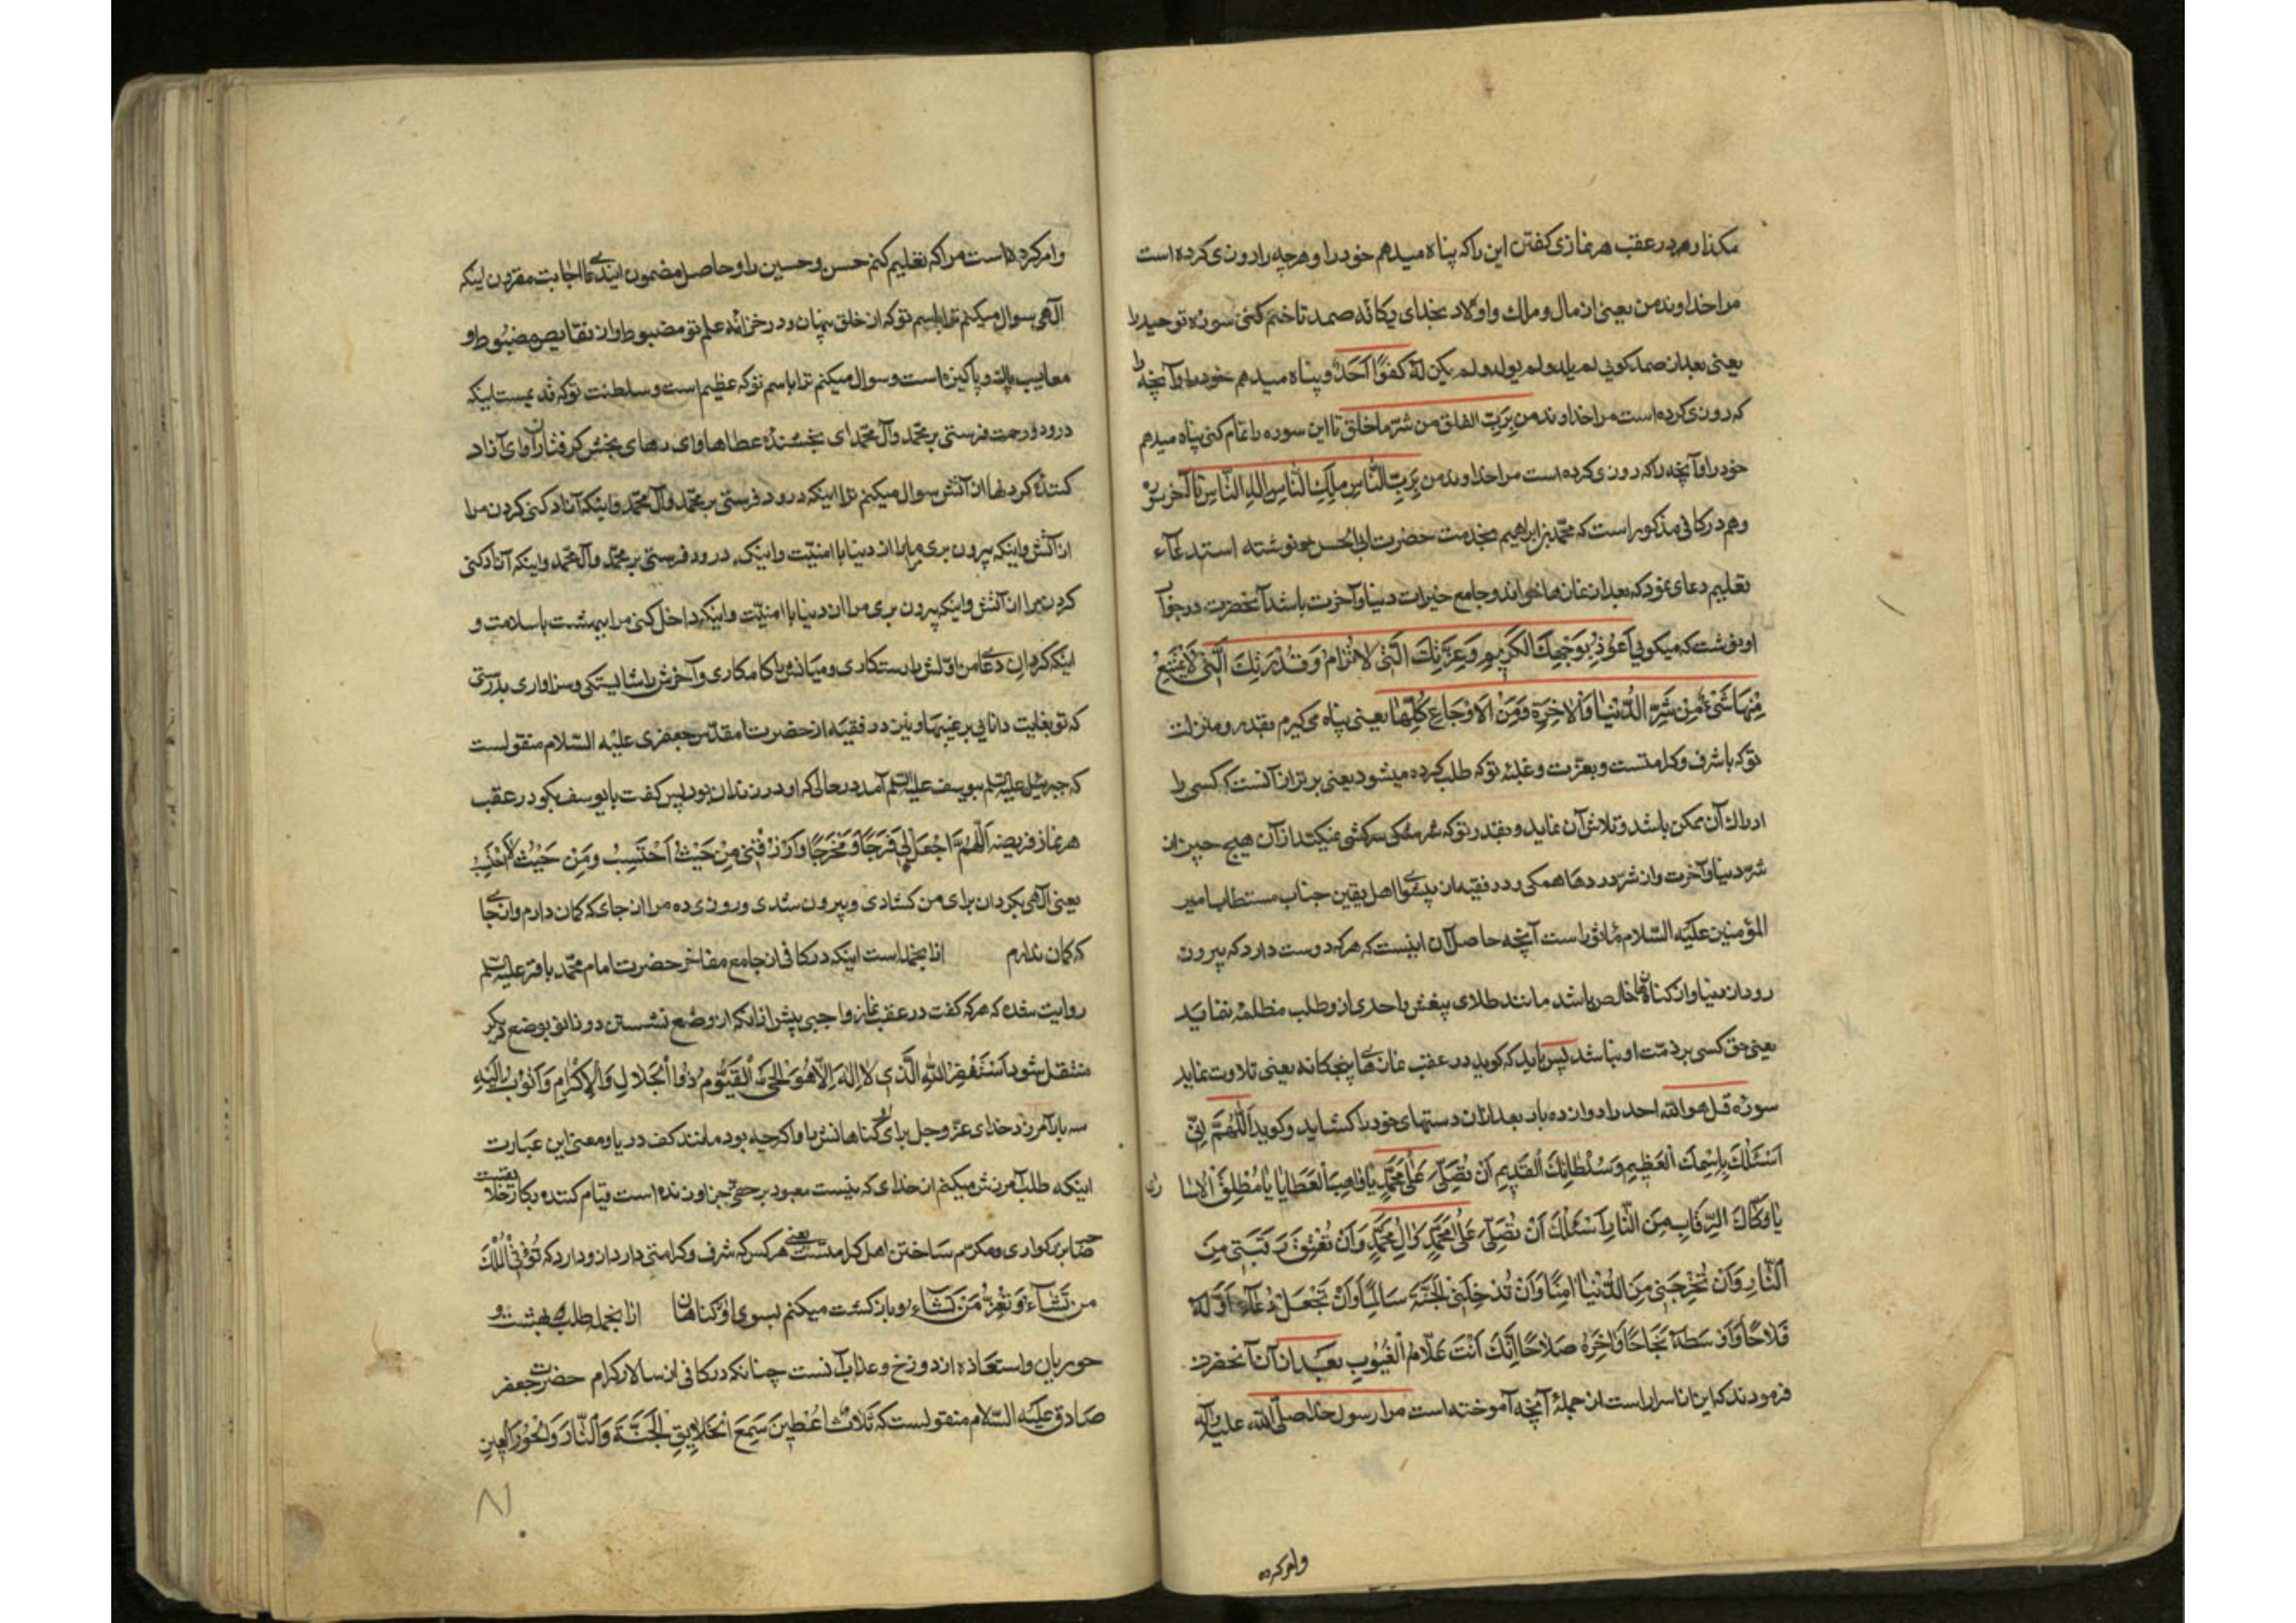 مکذار و هم در عقب هر نمازی کفتن این را که پناه میدهم خود را و هرچه را روزی کرده است
مرا خداوند من یعنی از مال و ملک و اولاد بخدای یکانه صمد تا ختم کنی سوره توحید را
یعنی بعد از صمد کویی لم یلد و لم یولد و لم یکن له کفوًا اَحَدٌ و پناه میدهم خود را و آنچه را
که روزی کرده است مرا خداوند من بِرَبِّ الفلق من شرّ ما خلق تا این سوره را تمام کنی پناه میدهم
خود را و آنچه را که روزی کرده است مرا خداوند من بِرَبِّ النَّاسِ مَلِكِ النَّاسِ اِلهِ النَّاسِ تا آخرش
و هم در کافی مذکور است که محمّد بن ابراهیم بخدمت حضرت ابی الحسن نوشته استدعآء
تعلیم دعای نمود که بعد از نمازها خواند و جامع خیرات دنیا و آخرت باشد آنحضرت در جواب
او نوشت که میکویی اَعُوذُ بِوَجْهِكَ الْكَرِیمِ وَعِزَّتِكَ الَّتی لاتُرٰامُ وَقُدْرَتِكَ الَّتی لایَمْتَنِعُ
مِنْهٰا شَیْءٌ مِنْ شَرِّ الدُّنْیٰا وَالْاٰخِرَةِ وَمِنَ الْاَوْجٰاعِ كُلِّهٰا یعنی پناه میکیرم بقدر و منزلت
تو که با شرف و کرامتست و بعزّت و غلبهٔ تو که طلب کرده میشود یعنی برتر از آنست که کسی را
ادراک آن ممکن باشد و تلاش آن نماید و بقدرت تو که سرکشی نمیکند از آن هیچ چیز از
شرّ دنیا و آخرت و از شرّ دردها همکی و در فقیه از پیشوای اهل یقین جناب مستطاب امیر
المؤمنین علیه السّلام مأثور است آنچه حاصل آن اینست که هر که دوست دارد که بیرون
رود از دنیا و از کناهان خالص باشد مانند طلای بیغش و احدی از و طلب مظلمه ننماید
یعنی حق کسی بر ذمّت او نباشد پس باید که کوید در عقب نمازهای پنجکانه یعنی تلاوت نماید
سورهٔ قل هو الله احد را دوازده بار بعد از آن دستهای خود را کشاید و کوید اَللّٰهُمَّ اِنّی
اَسْئَلُكَ بِاِسْمِكَ الْعَظِیمِ وَسُلْطٰانِكَ الْقَدِیمِ اَنْ تُصَلِّیَ عَلٰی مُحَمَّدٍ یٰا وٰاهِبَ الْعَطٰایٰا یٰا مُطْلِقَ الْاُسٰا
رٰی
یٰا فَكّٰاكَ الرِّقٰابِ مِنَ النّٰارِ اَسْئَلُكَ اَنْ تُصَلِّیَ عَلٰی مُحَمَّدٍ وَاٰلِ مُحَمَّدٍ وَاَنْ تُعْتِقَ رَقَبَتِی مِنَ
النّٰارِ وَاَنْ تُخْرِجَنِی مِنَ الدُّنْیٰا اٰمِنًا وَاَنْ تُدْخِلَنِی الْجَنَّةَ سٰالِمًا وَاَنْ تَجْعَلَ دُعٰآءِ اَوَّلَهُ
فَلٰاحًا وَاَوْسَطَهُ نَجٰاحًا وَاٰخِرَهُ صَلٰاحًا اِنَّكَ اَنْتَ عَلّٰامُ الْغُیُوبِ بعد از آن آنحضرت
فرمودند که این از اسرار است از جملهٔ آنچه آموخته است مرا رسول خدا صلّی الله علیه وآله
وامر کرده
وامر کرده است مرا که تعلیم کنم حسن و حسین را و حاصل مضمون این دعا اجابت مقرون اینکه
آلهی سوال میکنم ترا باسم تو که از خلق پنهان و در خزانهٔ علم تو مضبوط و از نقایص و
معایب پاک و پاکیزه است و سوال میکنم ترا باسم تو که عظیم است و سلطنت تو که قدیمست اینکه
درود و رحمت فرستی بر محمّد و آل محمّد ای بخشندهٔ عطاها و ای رهای بخش کرفتاران و ای آزاد
کنندهٔ کردنها از آتش سوال میکنم ترا اینکه درود فرستی بر محمّد و آل محمّد و اینکه آزاد کنی کردن مرا
از آتش و اینکه بیرون بری مرا از دنیا با امنیّت و اینکه درود فرستی بر محمّد و آل محمّد و اینکه آزاد کنی
کردن مرا از آتش و اینکه بیرون بری مرا از دنیا با امنیّت و اینکه داخل کنی مرا ببهشت با سلامت و
اینکه کردان دعا من اوّلش را رستکاری و میانش را کامکاری و آخرش را شایستکی و سزاواری بدرستی
که تو بغایت دانایی بر غیبها و نیز در فقیه از حضرت مقدّس جعفری علیه السّلام منقولست
که جبرئیل علیه السلم بیوسف علیه السلم آمد در حالی که او در زندان بود پس کفت یا یوسف بکو در عقب
هر نماز فریضه اَللّٰهُمَّ اجْعَلْ لِی فَرَجًا وَمَخْرَجًا وَارْزُقْنِی مِنْ حَیْثُ اَحْتَسِبُ وَمِنْ حَیْثُ لٰا اَحْتَسِبُ
یعنی آلهی بکردان برای من کشادی و بیرون شدی و روزی ده مرا از جای که کمان دارم و از جای
که کمان ندارم ازانجمله است اینکه در کافی از جامع مفاخر حضرت امام محمّد باقر علیه السلم
روایت شده که هر که کفت در عقب نماز واجبی پیش از آنکه از وضع نشستن دو زانو بوضع دیکر
منتقل شود اَسْتَغْفِرُ اللّٰهَ الَّذِی لٰا اِلٰهَ اِلّٰا هُوَ الْحَیُّ الْقَیُّومُ ذُوا الْجَلٰالِ وَالْاِكْرٰامِ وَاَتُوبُ اِلَیْهِ
سه بار آمرزد خدای عزّ و جل برای او کناهانش را و اکرچه بود مانند کف دریا و معنی این عبارت
اینکه طلب آمرزش میکنم از خدای که نیست معبود بر حقّی جز او زنده است قیام کننده بکار خلایق
صاحب بزرکواری و مکرّم ساختن اهل کرامتست یعنی هر کس که شرف و کرامتی دارد از و دارد که تُؤْتِی الْمُلْكَ
مَنْ تَشٰآءُ وَتُعِزُّ مَنْ تَشٰآءُ و بازکشت میکنم بسوی او از کناهان ازانجمله طلب بهشت و
حوریان و استعاذه از دوزخ و عذاب آنست چنانکه در کافی از سالار کرام حضرت جعفر
صادق علیه السّلام منقولست که ثَلٰاثٌ اُعْطِینَ سَمْعَ الْخَلٰایِقِ الْجَنَّةُ وَالنّٰارُ وَالْحُورُ الْعِینُ
٨١